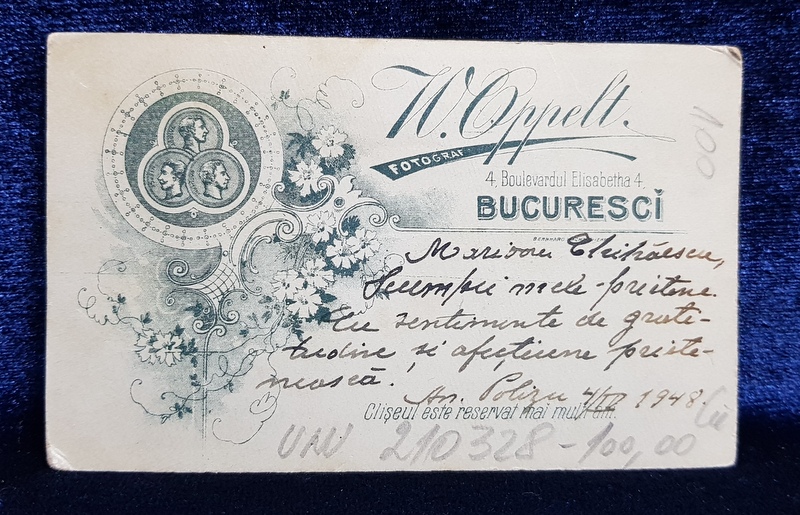 W. Oppelt.
FOTOGRAF
4, Boulevardul Elisabetha 4.
BUCURESCĬ
100
Scumpei mele prietene.
Cu sentimente de grati-
tudine si afecțiune priete-
nească.
An. Polizu 4/IV 1948.
Clișeul este reservat mai mulți ani.
UNV 210328 - 100,00